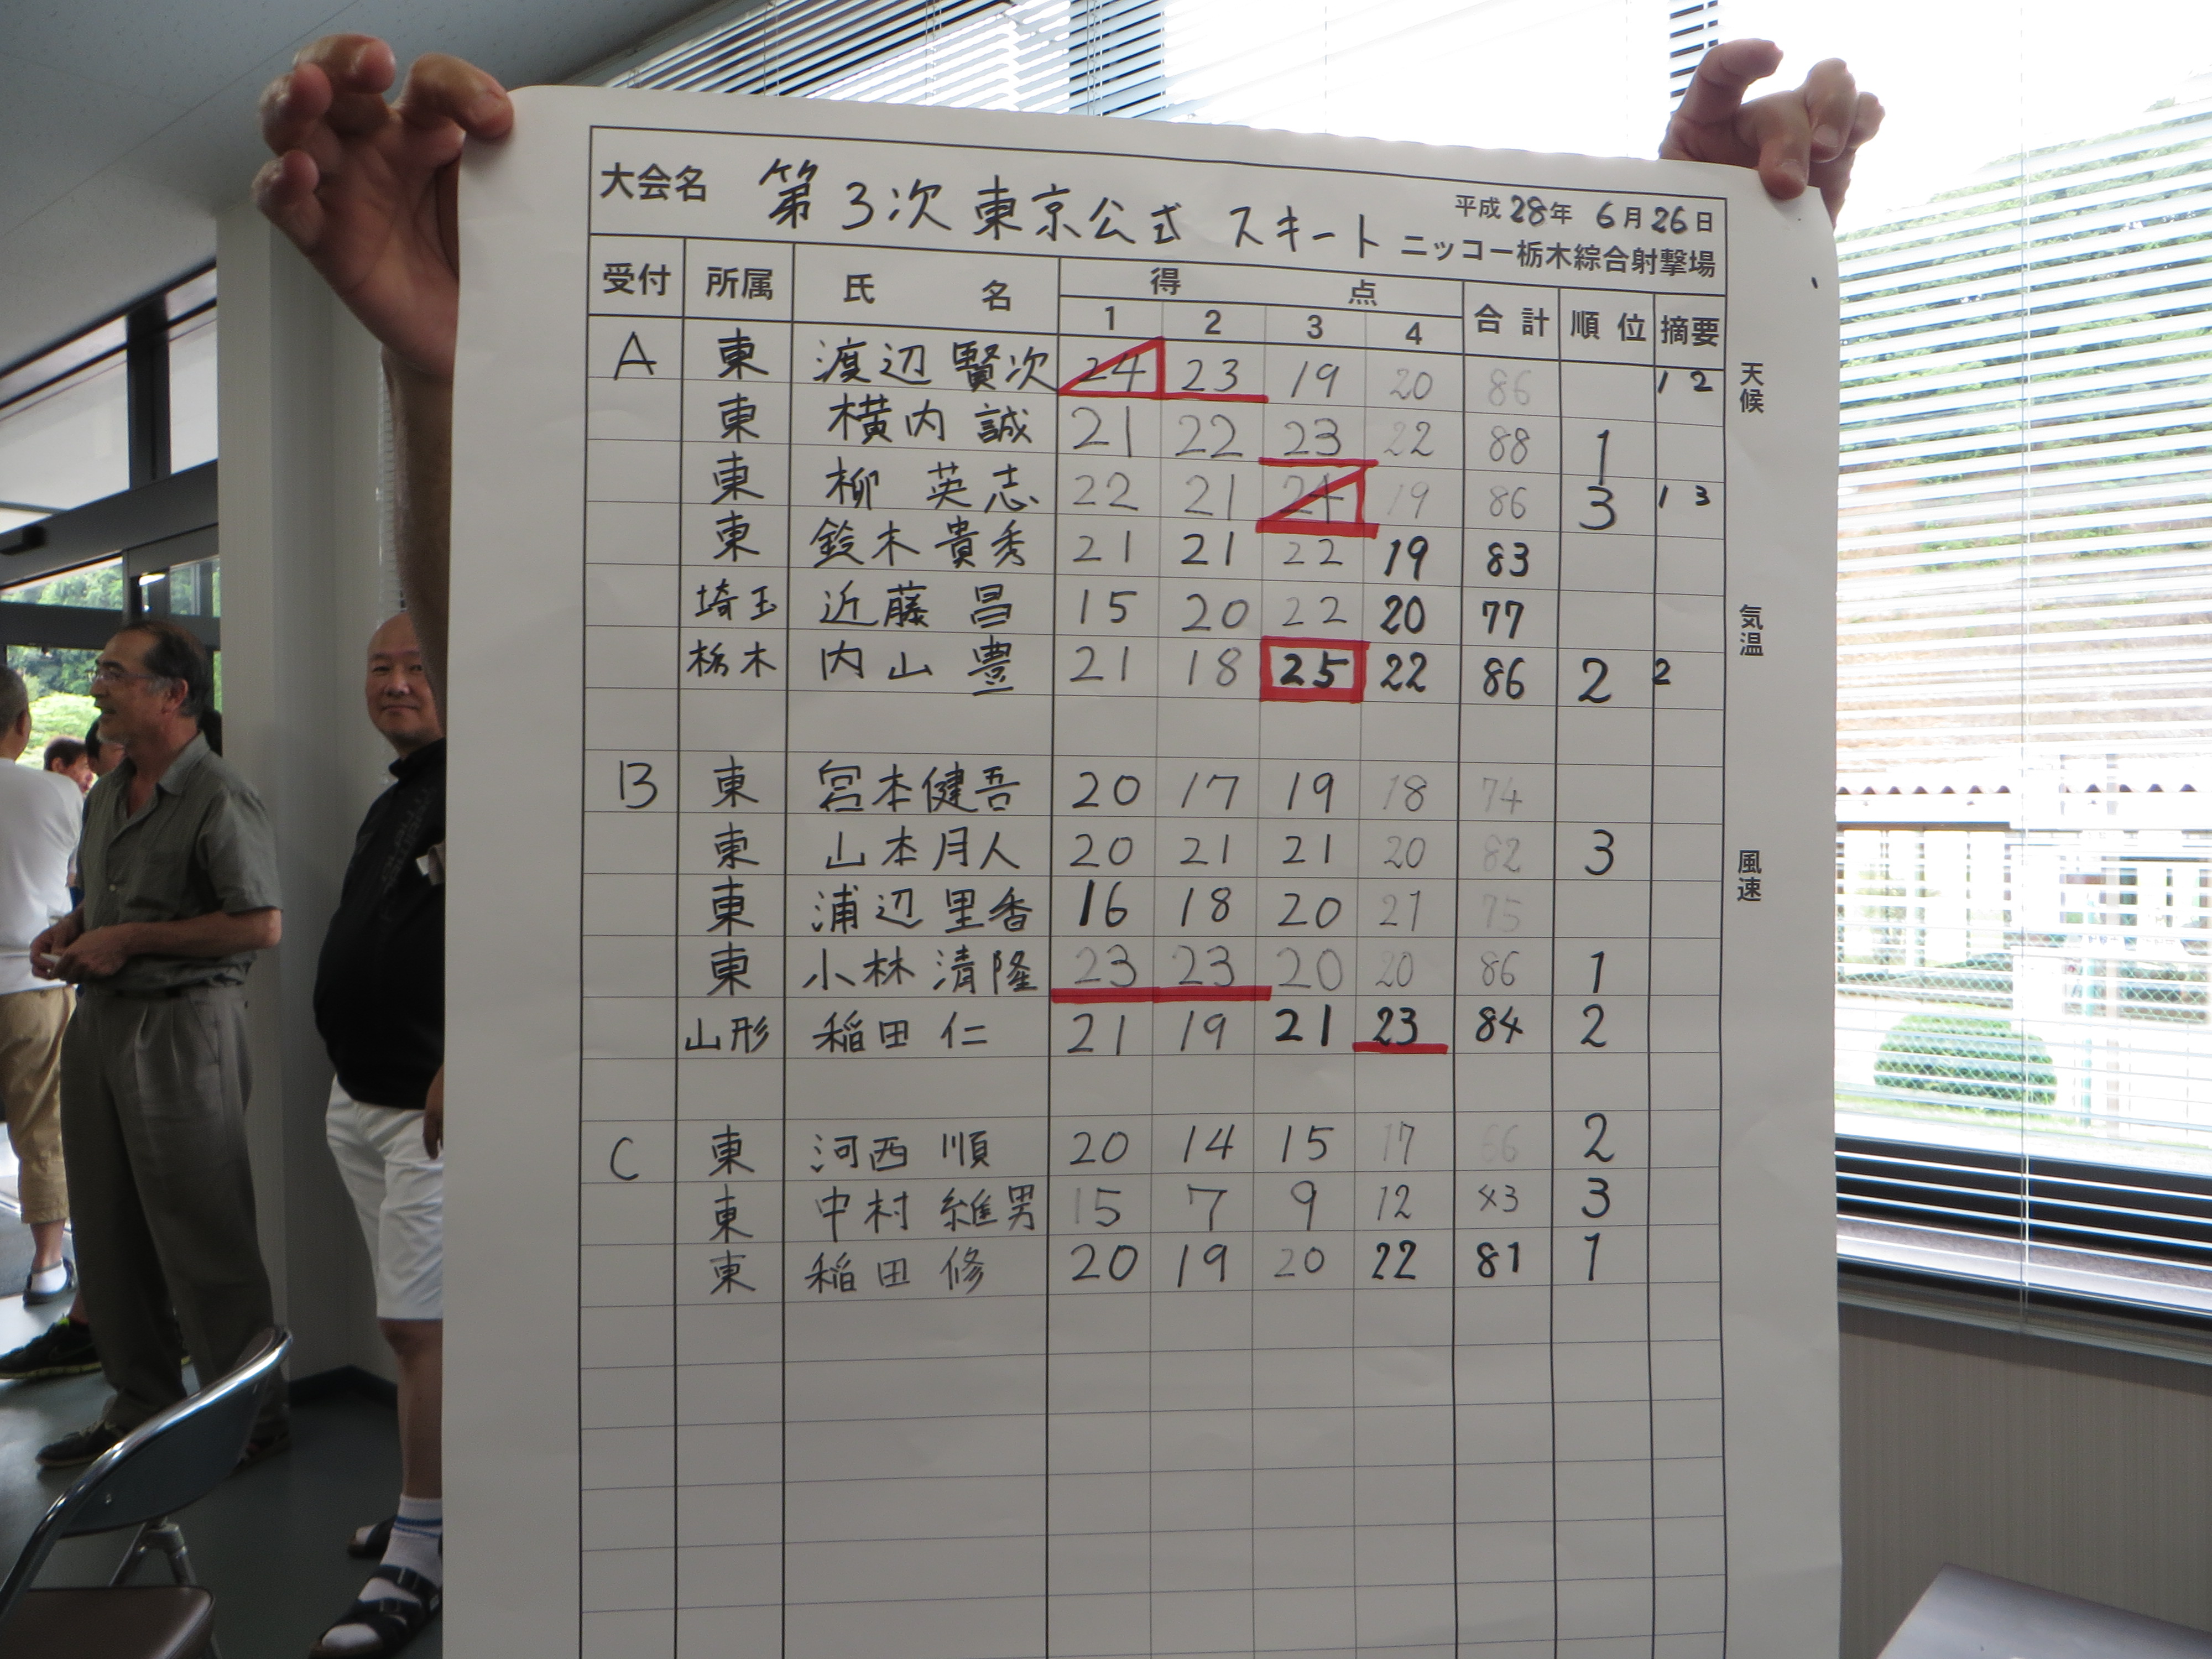 大会名 第3次東京公式 スキート 平成28年 6月26日
ニッコー栃木綜合射撃場
受付 所属 氏 名 得 点 合計 順位 摘要
1 2 3 4
A 東 渡辺 賢次 24 23 19 20 86 1 2
東 横内 誠 21 22 23 22 88 1
東 柳 英志 22 21 24 19 86 3 1 3
東 鈴木貴秀 21 21 22 19 83
埼玉 近藤 昌 15 20 22 20 77
栃木 内山 豊 21 18 25 22 86 2 2
B 東 宮本健吾 20 17 19 18 74
東 山本月人 20 21 21 20 82 3
東 浦辺里香 16 18 20 21 75
東 小林清隆 23 23 20 20 86 1
山形 稲田 仁 21 19 21 23 84 2
C 東 河西 順 20 14 15 17 66 2
東 中村 維男 15 7 9 12 43 3
東 稲田 修 20 19 20 22 81 1
天候
気温
風速